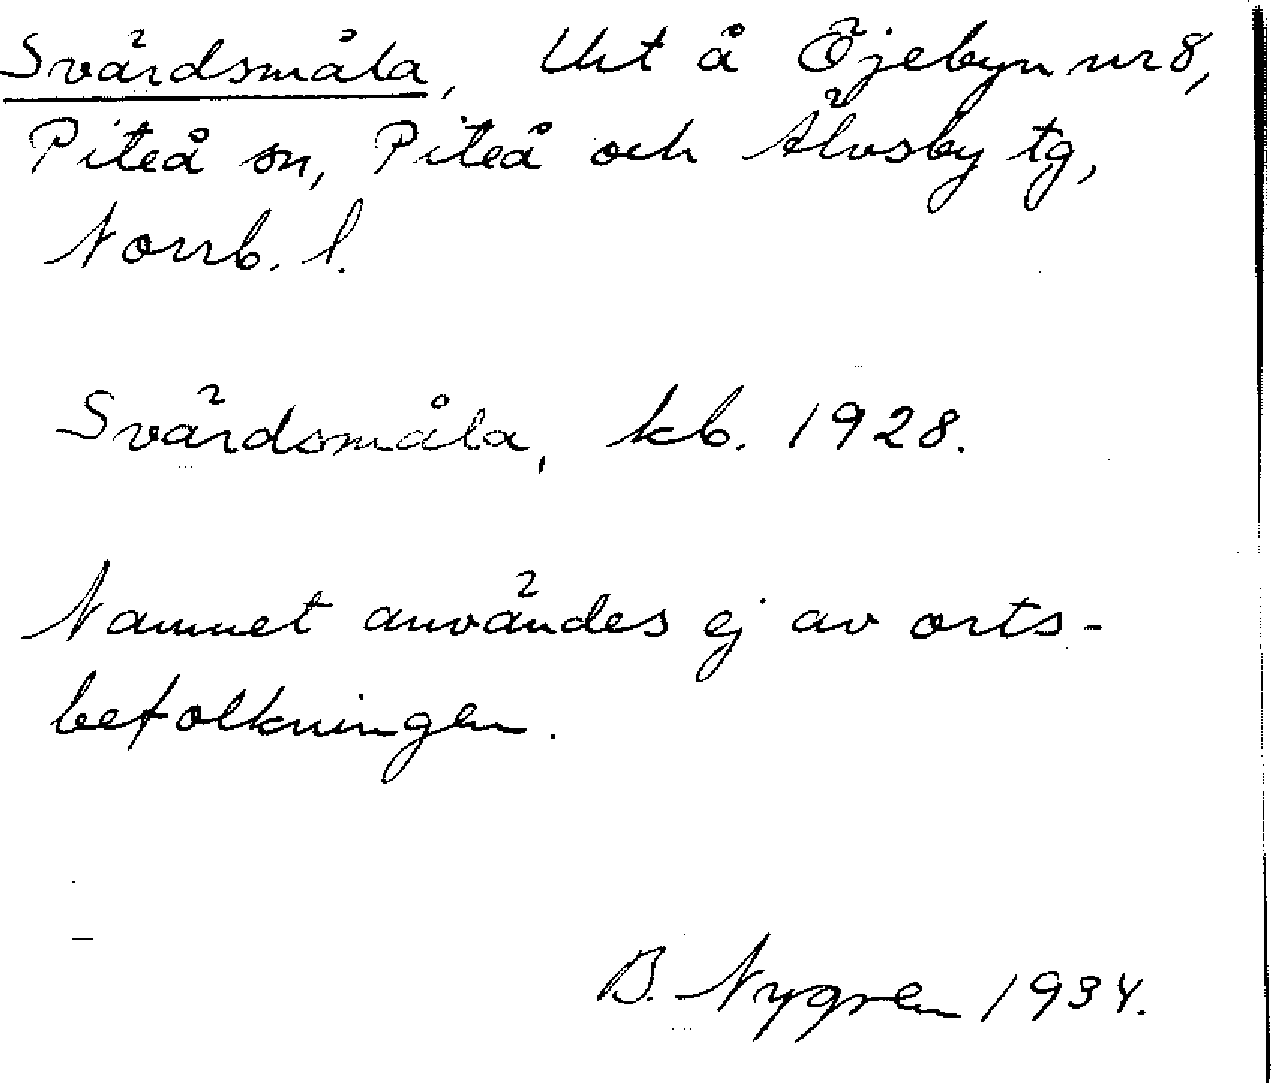 Svärdsmåla, Uit å Öjebyn nr 8,
Piteå sn, Piteå och Älvsby tg,
Norrb. l.
Svärdsmåla, kb. 1928.
Namnet användes ej av orts-
befolkningen.
B. Nygren 1934.